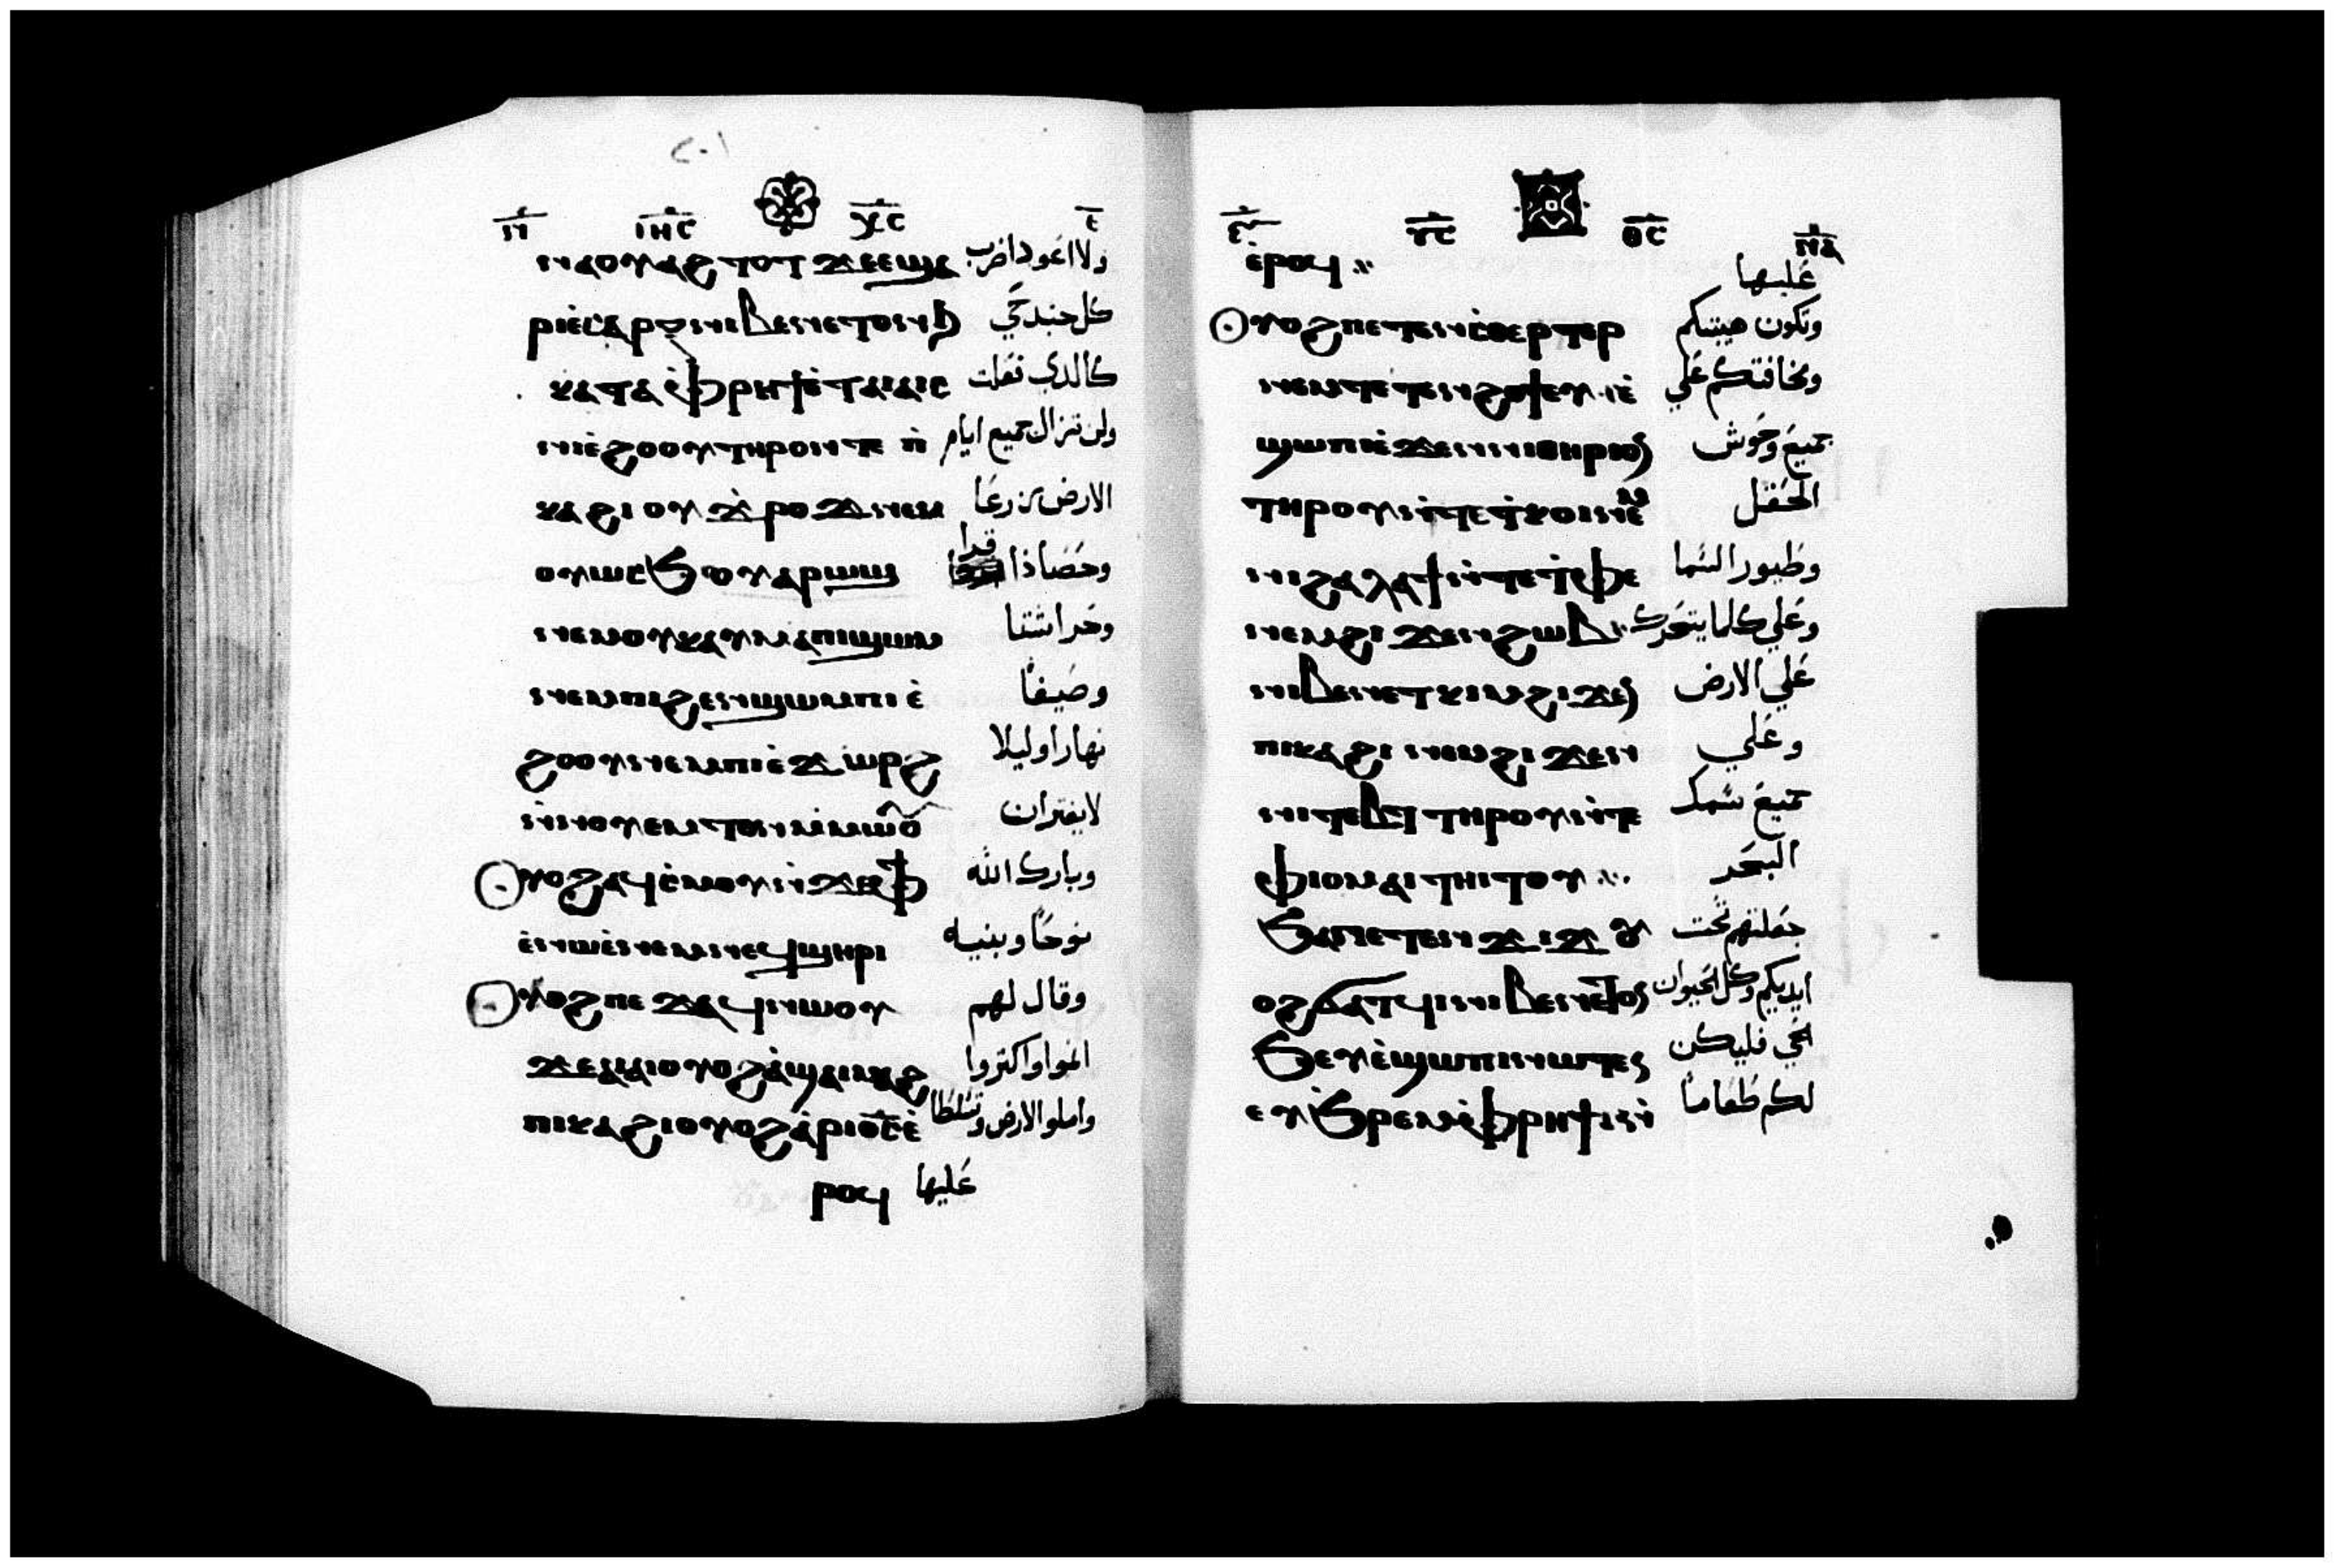 ٢٠١
ⲓⲏⲥ ⲭⲥ
ⲛⲛⲁⲟⲩⲁϩⲧⲟⲧ ϫⲉⲉϣⲁ ولا اعود اضرب
ⲣⲓⲉⲥⲁⲣⲝ ⲛⲓⲃⲉⲛⲉⲧⲟⲛϧ كل جسد حي
ⲕⲁⲧⲁⲫⲣⲏϯⲉⲧⲁⲓⲁⲓⲥ كالذي فعلت
ⲛⲓⲉϩⲟⲟⲩⲧⲏⲣⲟⲩⲛⲧⲉ ⲡ ولن تزال جميع ايام
ⲕⲁϩⲓ ⲟⲩϫⲣⲟϫ ⲛⲉⲙ الارض زرعا
ⲟⲩⲱⲥϧ ⲟⲩⲁⲣⲱϣ وحصادا قرا
ⲛⲉⲙⲟⲩⲕⲁⲩⲙⲁⲡⲓϣⲱⲙ وحرا شتا
ⲛⲉⲙⲡⲓϩⲉⲛϣⲱⲙⲡⲓⲉ وصيفا
ϩⲟⲟⲩⲛⲉⲙⲡⲓⲉϫⲱⲣϩ نهارا وليلا
ⲛⲛⲟⲩⲉⲙⲧⲟⲛⲙⲙⲱⲟⲩ لا يفتران
ⲟⲩⲟϩⲁϥⲥⲙⲟⲩⲛϫⲉⲫϯ وبارك الله
ⲉⲛⲱⲉⲛⲉⲙⲛⲉϥϣⲏⲣⲓ نوحا وبنيه
ⲟⲩⲟϩⲡⲉϫⲁϥⲛⲱⲟⲩ وقال لهم
ϫⲉⲁⲓⲁⲓⲟⲩⲟϩⲁϣⲁⲓⲙⲁϩ انموا واكثروا
ⲡⲓⲕⲁϩⲓⲟⲩⲟϩⲁⲣⲓⲟⲥⲉ واملوا الارض وتسلطا
ⲣⲟϥ عليها
ⲩⲥ ⲑⲥ
ⲉⲣⲟϥ عليها
ⲟⲩⲟϩⲡⲉⲧⲉⲛⲥⲑⲉⲣⲧⲉⲣ وتكون هيبتكم
ⲛⲉⲙⲧⲉⲧⲉⲛϩⲟϯⲉⲩⲉ ومخافتكم علي
ϣⲱⲡⲓⲉϫⲉⲛⲛⲓⲑⲏⲣⲓⲟⲛ جميع وحوش
ⲧⲏⲣⲟⲩⲛⲧⲉⲧⲕⲟⲓⲛⲉⲙ الحقل
ⲛⲓϩⲁⲗⲁϯⲛⲧⲉⲧⲫⲉ وطيور السما
ⲛⲉⲙϩⲓ ϫⲉⲛϩⲱⲃ وعلي كلما يتحرك
ⲛⲓⲃⲉⲛⲉⲧⲕⲓⲙϩⲓϫⲉⲛ علي الارض
ⲡⲓⲕⲁϩⲓ ⲛⲉⲙϩⲓϫⲉⲛ وعلي
ⲛⲓⲧⲉⲃⲧ ⲧⲏⲣⲟⲩⲛⲧⲉ جميع سمك
ⲫⲓⲟⲙⲁⲓⲧⲏⲓⲧⲟⲩ البحر
ϧⲁⲛⲉⲧⲉⲛϫⲓϫ ⲟⲩ جعلتهم تحت
ⲟϩϭⲁⲧϥⲓⲛⲓⲃⲉⲛⲉⲧⲟⲛ ايديكم وكل الحيوان
ϧⲉⲩⲉϣⲱⲡⲓⲛⲱⲧⲉⲛ الحي فليكن
ⲉⲩϧⲣⲉⲙⲫⲣⲏϯⲛ لكم طعاما